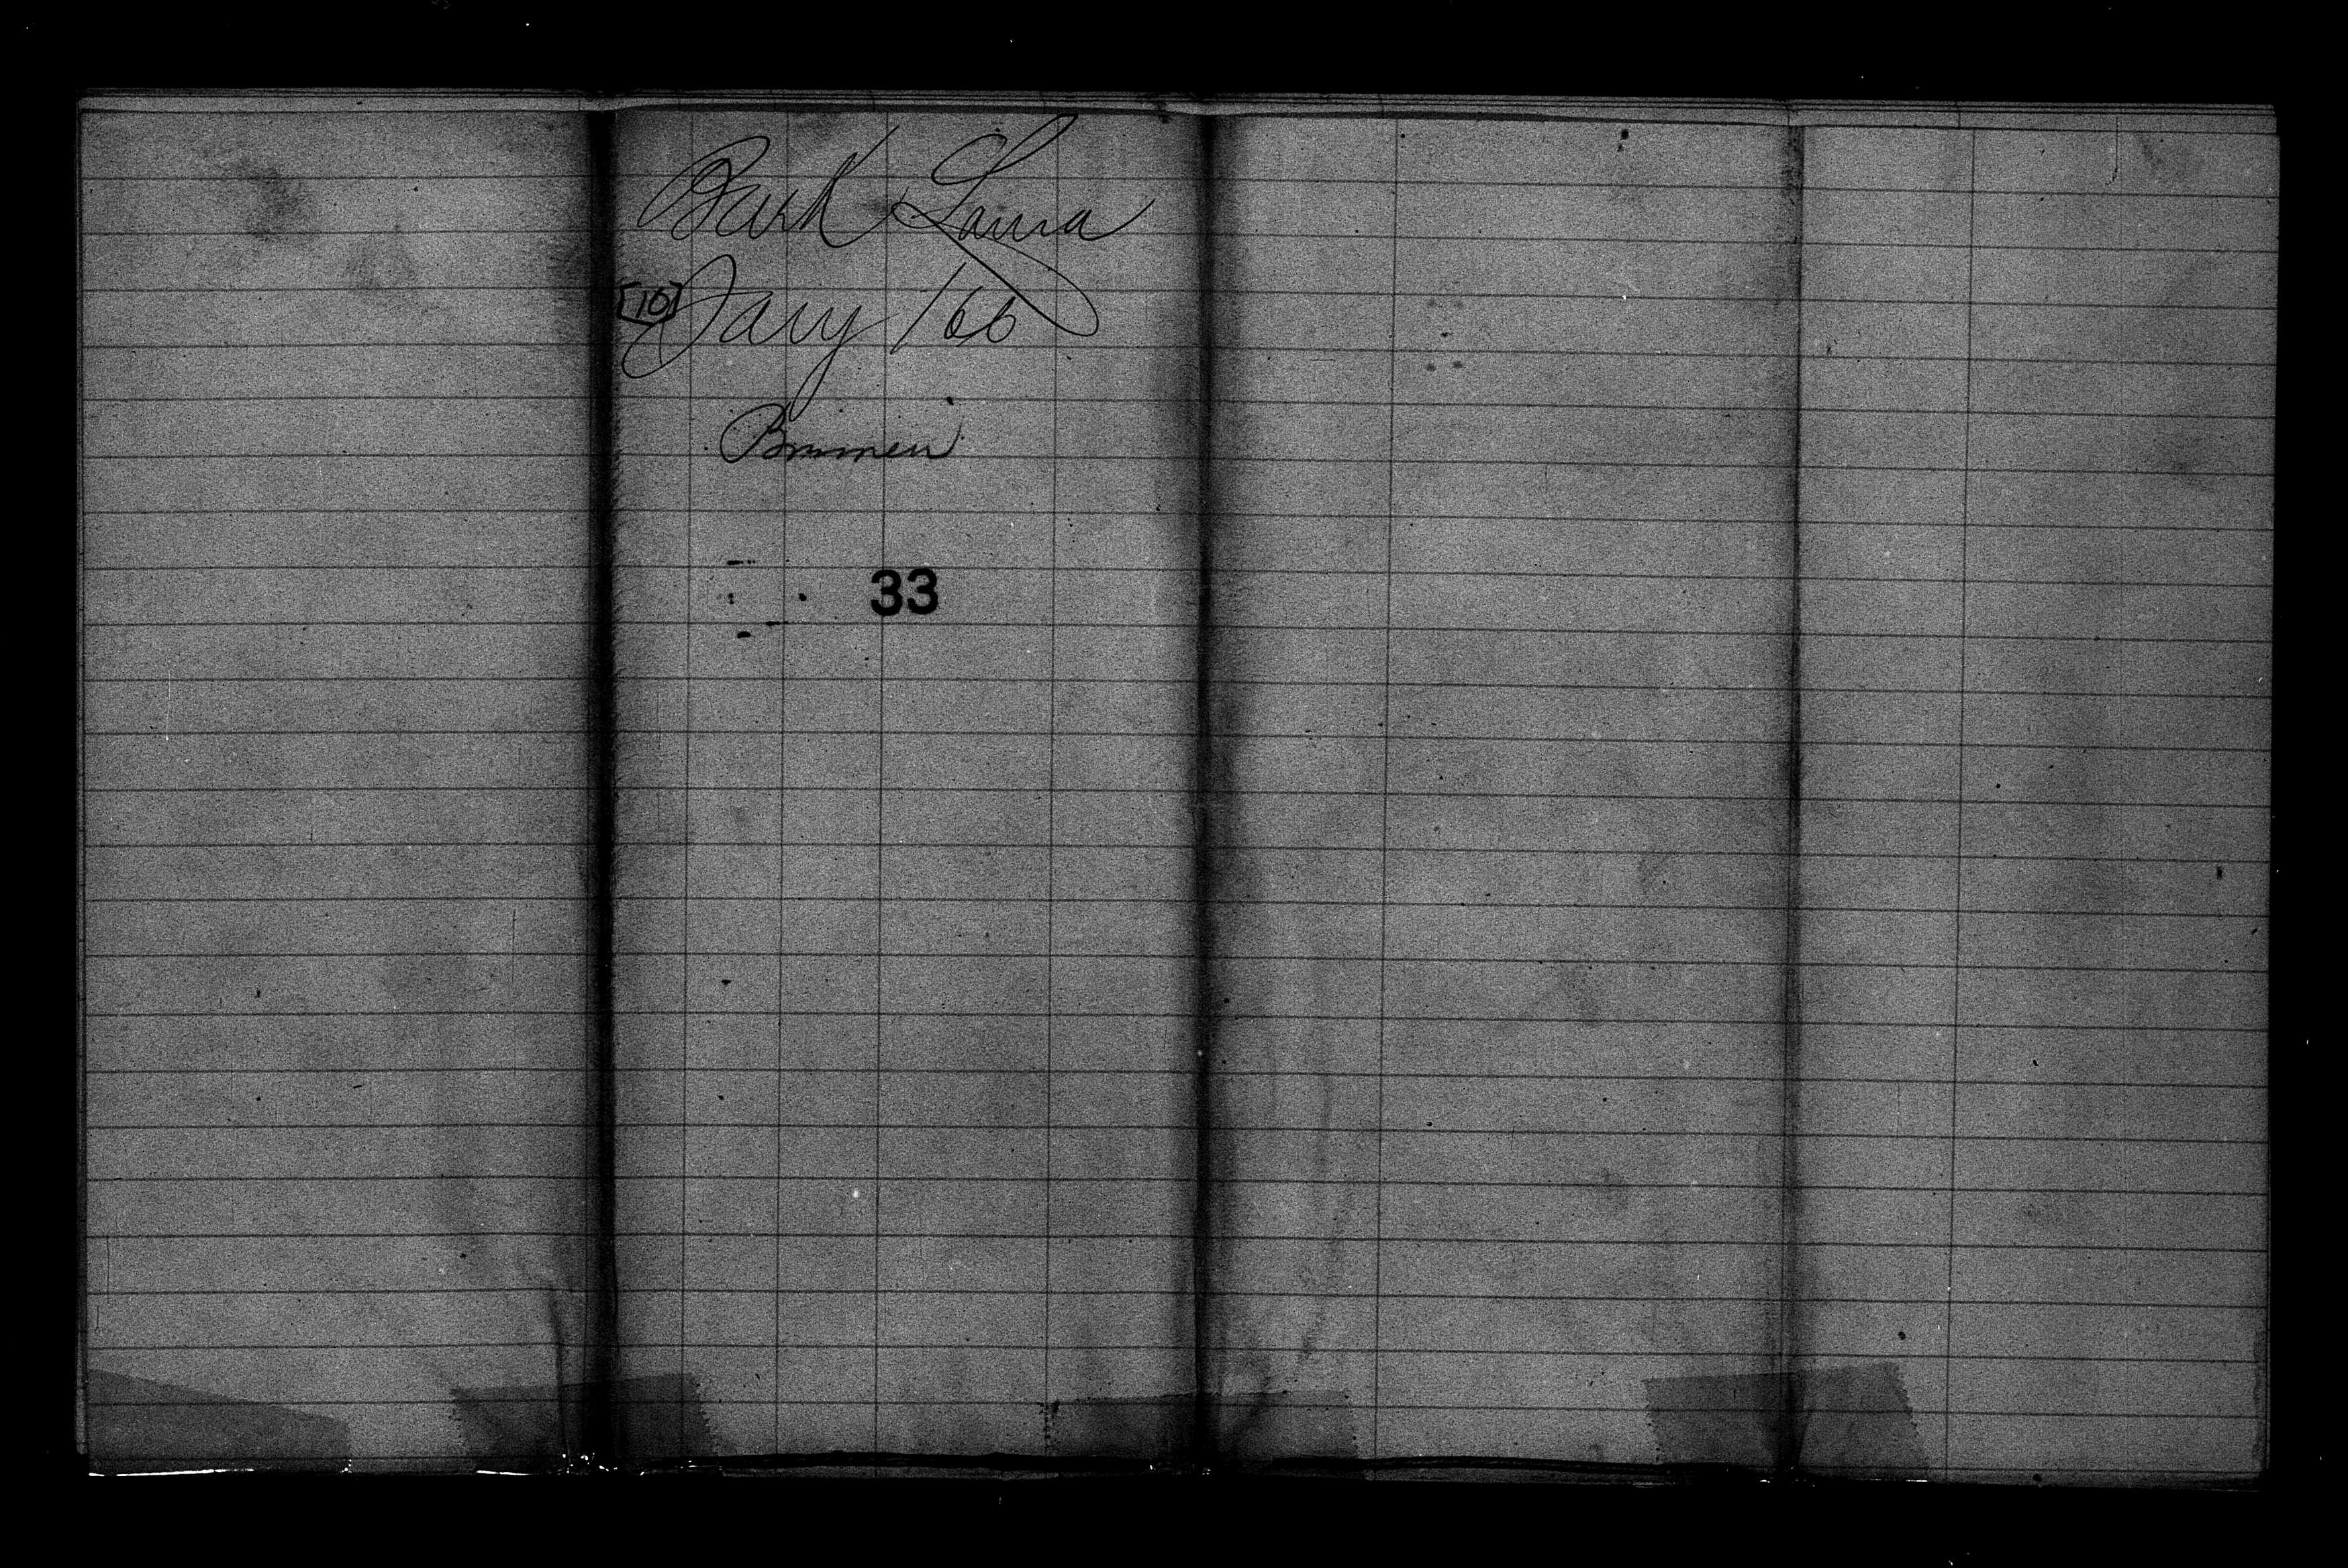 Bark Laura
[10] Jany /66
Bremen
33